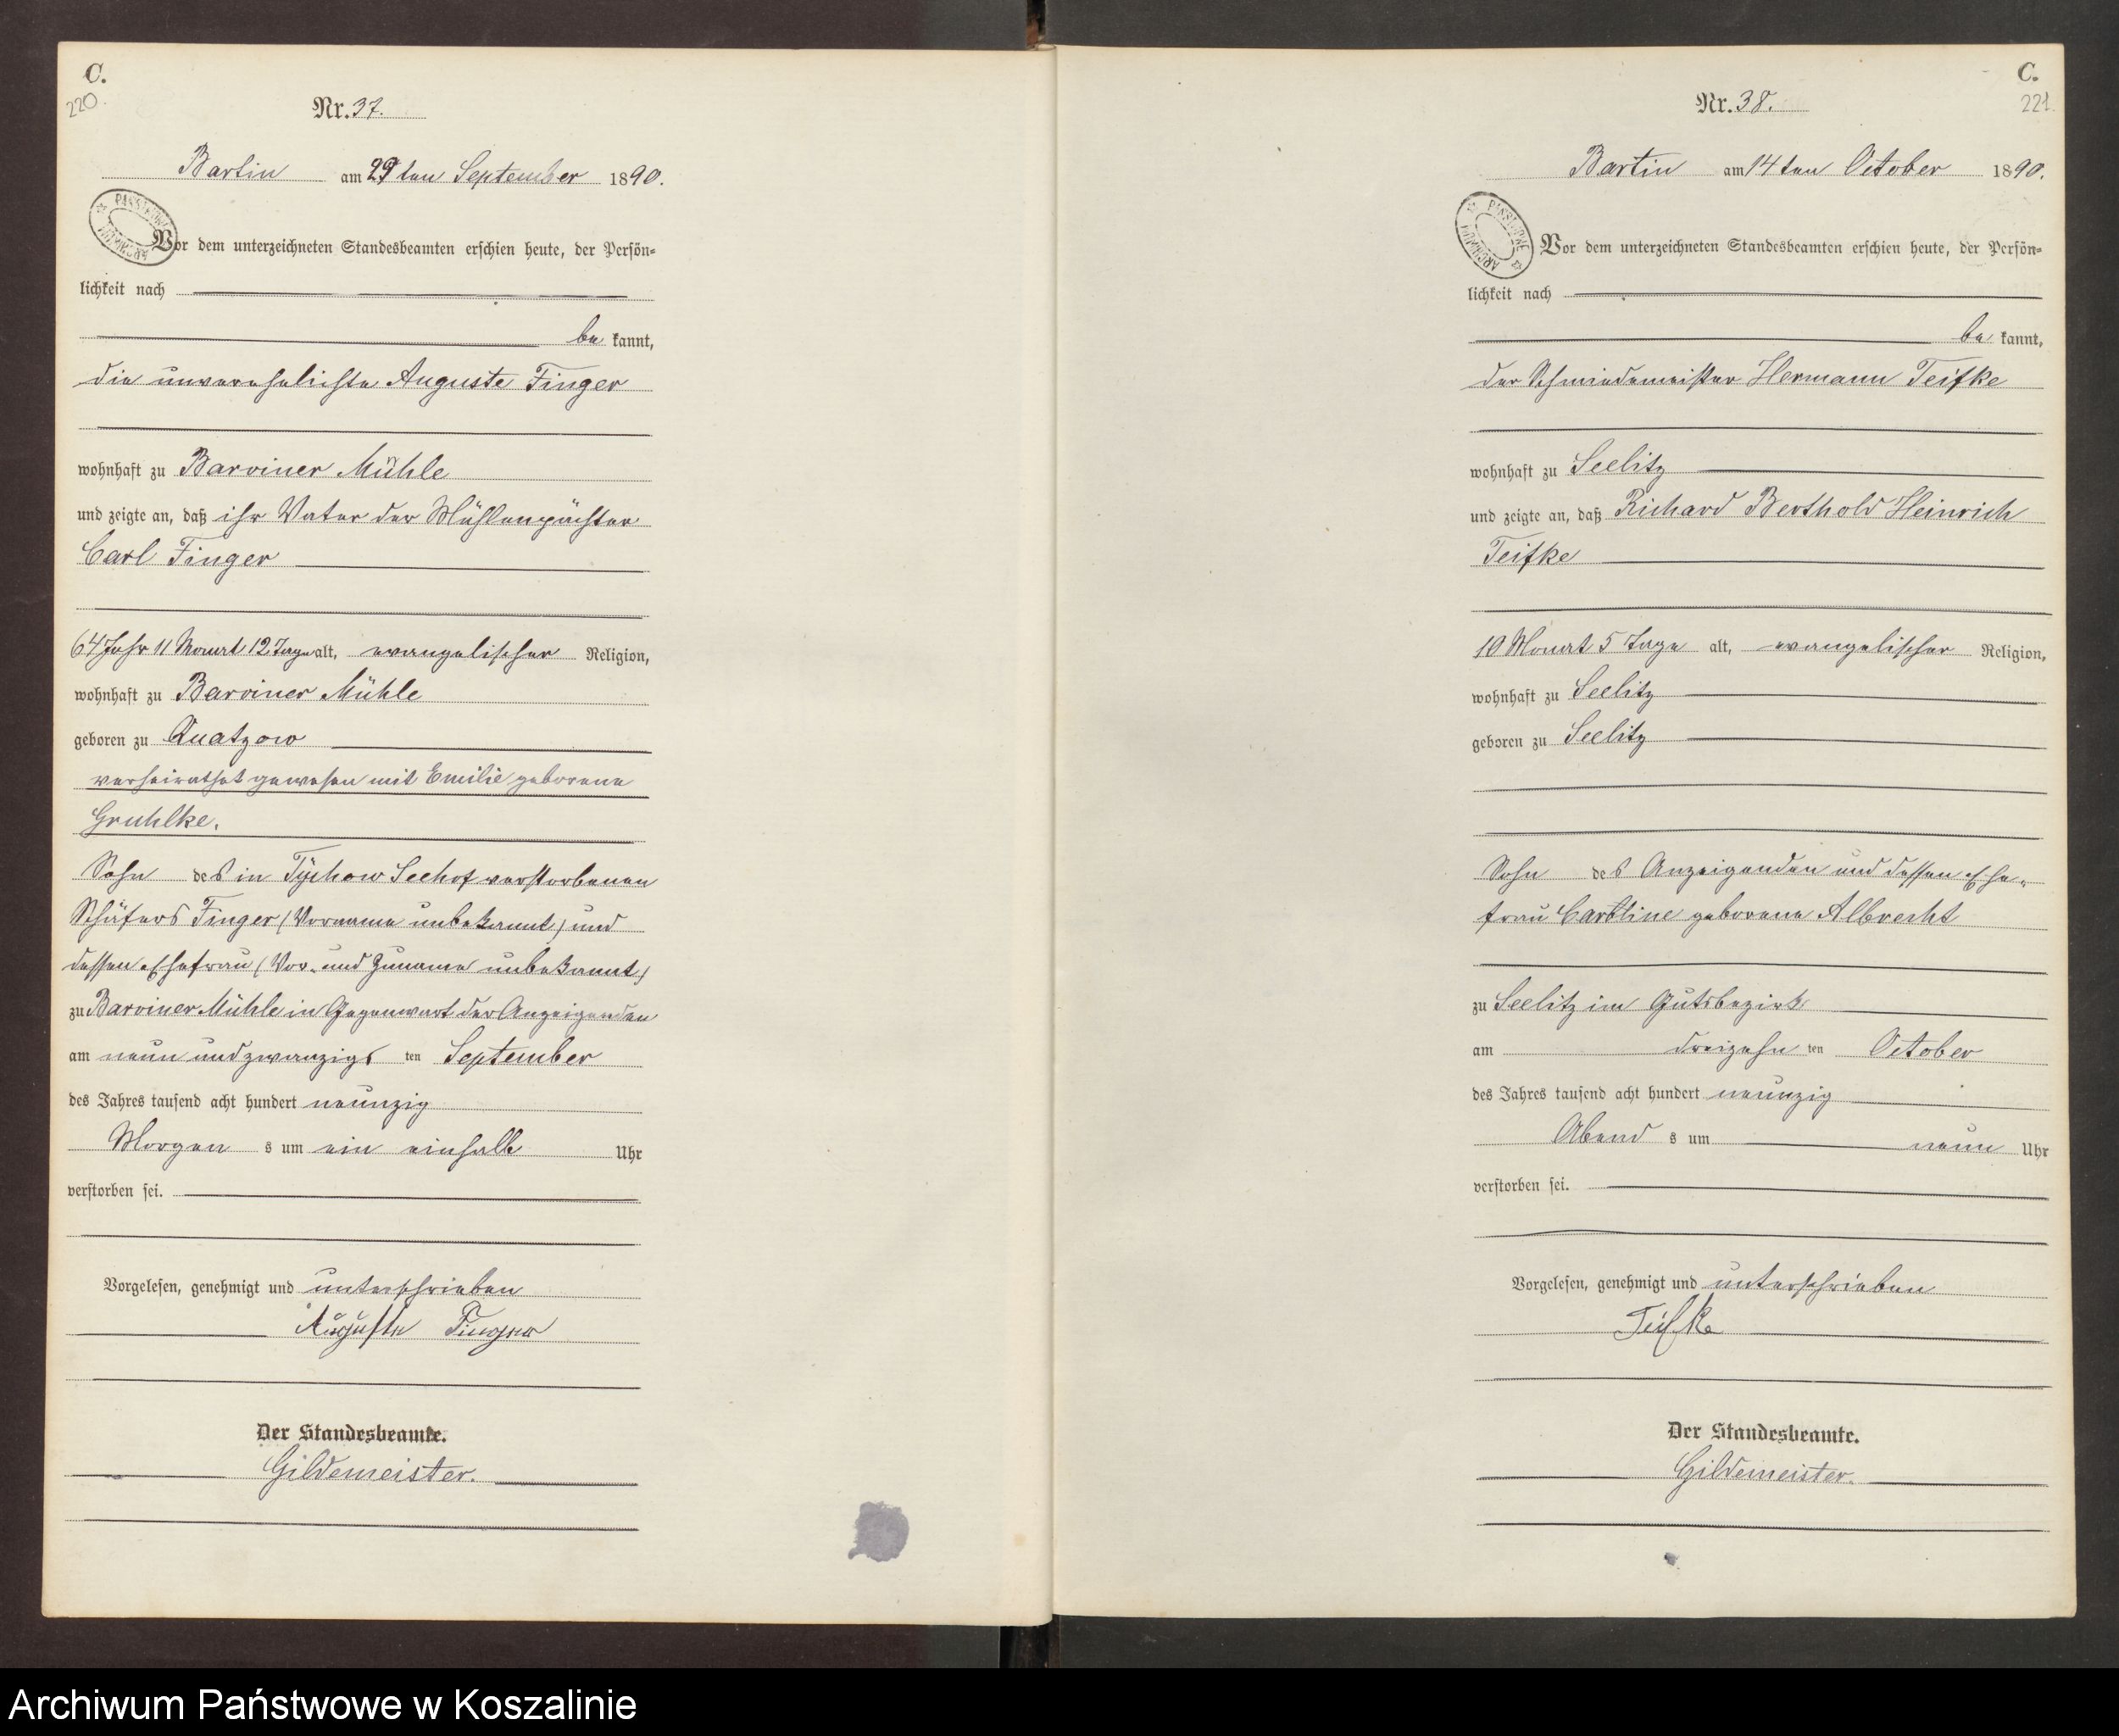 C.
220.
Nr. 37.
Bartin am 29ten September 1890.
Vor dem unterzeichneten Standesbeamten erschien heute, der Persön=
lichkeit nach
be kannt,
die unverehelichte Auguste Finger
wohnhaft zu Barviner Mühle
und zeigte an, daß ihr Vater der Mühlenpächter
Carl Finger
64 Jahr 11 Monat 12 Tage alt, evangelischer Religion,
wohnhaft zu Barviner Mühle
geboren zu Quatzow
verheirathet gewesen mit Emilie geborene
Gruhlke.
Sohn des in Tychow Seehof verstorbenen
Schäfers Finger (Vorname unbekannt) und
dessen Ehefrau (Vor- und Zuname unbekannt)
zu Barviner Mühle in Gegenwart der Anzeigenden
am neun und zwanzigs ten September
des Jahres tausend acht hundert neunzig
Morgen s um ein einhalb Uhr
verstorben sei.
Vorgelesen, genehmigt und unterschrieben
Auguste Finger
Der Standesbeamte.
Gildemeister.
C.
221.
Nr. 38.
Bartin am 14ten October 1890.
PAŃSTWOWE ARCHIWUM
Vor dem unterzeichneten Standesbeamten erschien heute, der Persön=
lichkeit nach
be kannt,
der Schmiedemeister Hermann Teifke
wohnhaft zu Seelitz
und zeigte an, daß Richard Berthold Heinrich
Teifke
10 Monat 5 Tage alt, evangelischer Religion,
wohnhaft zu Seelitz
geboren zu Seelitz
Sohn des Anzeigenden und dessen Ehe-
frau Caroline geborene Albrecht
zu Seelitz im Gutsbezirk
am dreizehn ten October
des Jahres tausend acht hundert neunzig
Abend s um neun Uhr
verstorben sei.
Vorgelesen, genehmigt und unterschrieben
Teifke
Der Standesbeamte.
Gildemeister.
Archiwum Państwowe w Koszalinie